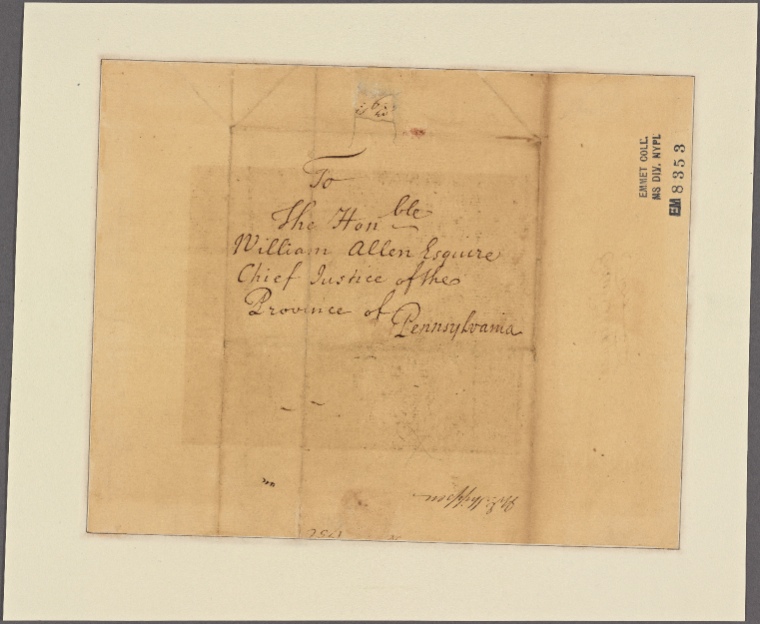 To
The Hon ble
William Allen Esquire
Chief Justice of the
Province of
Pennsylvania
EMMET COLL.
MS DIV. NYPL
EM 8353